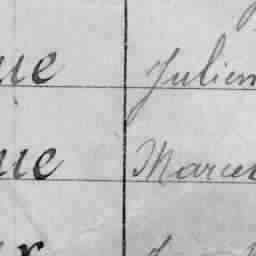 ue Julien
ue Marce